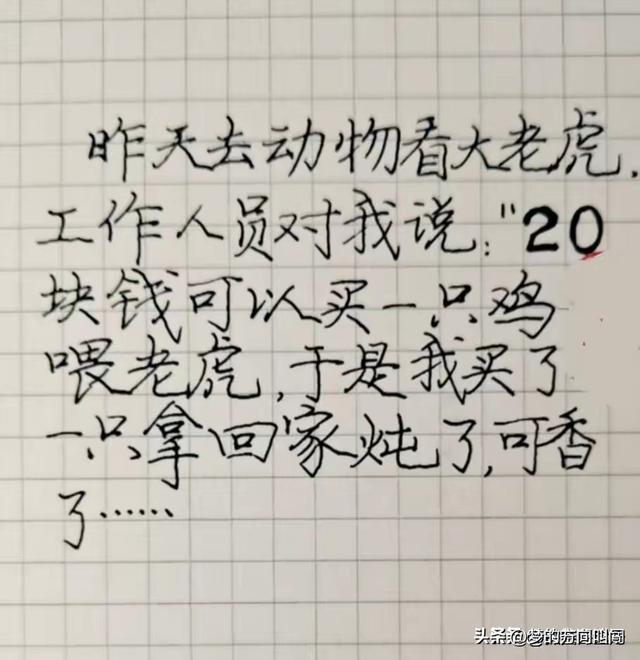 昨天去动物看大老虎.
工作人员对我说："20
块钱可以买一只鸡
喂老虎,于是我买了
一只拿回家炖了,可香
了……